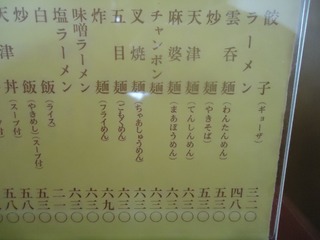 餃子(ギョーザ) 三二〇
ラーメン 四八〇
雲呑麺(わんたんめん) 五三〇
炒麺(やきそば) 五三〇
天津麺(てんしんめん) 六三〇
麻婆麺(まあぼうめん) 六三〇
チャンポン麺 六三〇
叉焼麺(ちゃあしゅうめん) 六三〇
五目麺(ごもくめん) 六三〇
炸麺(フライめん) 六九〇
味噌ラーメン 六三〇
塩ラーメン
白飯(ライス) 二一〇
炒飯(やきめし)(スープ付) 五三〇
天津丼(スープ付) 五八〇